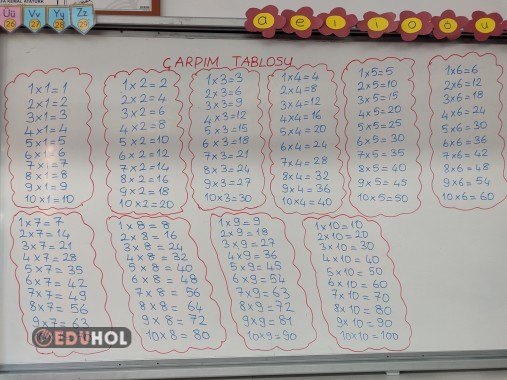 Üü Vv Yy Zz
26 27 28 29
a e ı i o ö u
ÇARPIM TABLOSU
1x1=1
2x1=2
3x1=3
4x1=4
5x1=5
6x1=6
7x1=7
8x1=8
9x1=9
10x1=10
1x2=2
2x2=4
3x2=6
4x2=8
5x2=10
6x2=12
7x2=14
8x2=16
9x2=18
10x2=20
1x3=3
2x3=6
3x3=9
4x3=12
5x3=15
6x3=18
7x3=21
8x3=24
9x3=27
10x3=30
1x4=4
2x4=8
3x4=12
4x4=16
5x4=20
6x4=24
7x4=28
8x4=32
9x4=36
10x4=40
1x5=5
2x5=10
3x5=15
4x5=20
5x5=25
6x5=30
7x5=35
8x5=40
9x5=45
10x5=50
1x6=6
2x6=12
3x6=18
4x6=24
5x6=30
6x6=36
7x6=42
8x6=48
9x6=54
10x6=60
1x7=7
2x7=14
3x7=21
4x7=28
5x7=35
6x7=42
7x7=49
8x7=56
9x7=63
1x8=8
2x8=16
3x8=24
4x8=32
5x8=40
6x8=48
7x8=56
8x8=64
9x8=72
10x8=80
1x9=9
2x9=18
3x9=27
4x9=36
5x9=45
6x9=54
7x9=63
8x9=72
9x9=81
10x9=90
1x10=10
2x10=20
3x10=30
4x10=40
5x10=50
6x10=60
7x10=70
8x10=80
9x10=90
10x10=100
EDUHOL